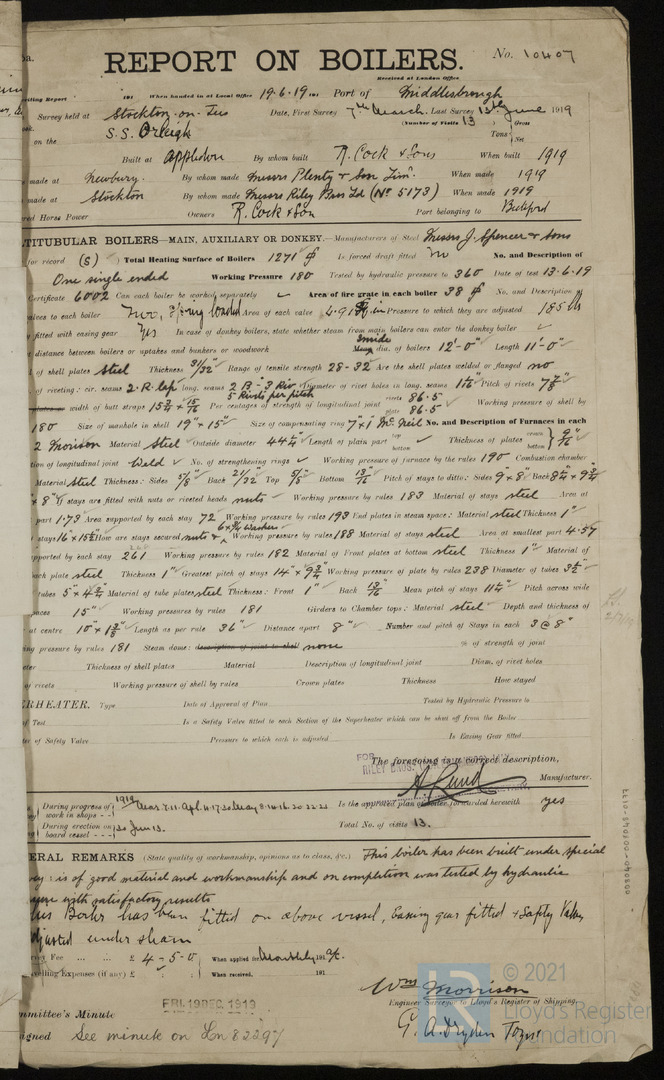 REPORT ON BOILERS.
No. 10407
Received at London Office
When handed in at Local Office 19.6.19 Port of Middlesbrough
Survey held at Stockton-on-Tees Date, First Survey 7th March Last Survey 13th June 1919
on the S.S. Orleigh (Number of Visits 13) Gross
Tons Net
Built at Appledore By whom built R. Cock & Sons When built 1919
made at Newbury. By whom made Messrs Plenty & Son Lim. When made 1919
made at Stockton By whom made Messrs Riley Bros Ld (No 5173) When made 1919
Horse Power Owners R. Cock & Son Port belonging to Bideford
TITUBULAR BOILERS—MAIN, AUXILIARY OR DONKEY.—Manufacturers of Steel Messrs J. Spencer & Sons
for record (S) Total Heating Surface of Boilers 1271 Is forced draft fitted No No. and Description of
One single ended Working Pressure 180 Tested by hydraulic pressure to 360 Date of test 13.6.19
Certificate 6002 Can each boiler be worked separately Area of fire grate in each boiler 38 No. and Description of
valves to each boiler Two, spring loaded Area of each valve 4.91 Pressure to which they are adjusted 185 lb
fitted with easing gear Yes In case of donkey boilers, state whether steam from main boilers can enter the donkey boiler
distance between boilers or uptakes and bunkers or woodwork Inside dia. of boilers 12'-0" Length 11'-0"
of shell plates steel Thickness 31/32" Range of tensile strength 28-32 Are the shell plates welded or flanged no
of riveting: cir. seams 2.R. lap long. seams 2 B.S. 3 Riv. Diameter of rivet holes in long. seams Pitch of rivets 7 7/8"
5 Rivets per pitch
width of butt straps Per centages of strength of longitudinal joint rivets 86.5 plate 86.5 Working pressure of shell by
180 Size of manhole in shell 19" × 15" Size of compensating ring 7" × 1" McNeil No. and Description of Furnaces in each
2 Morison Material Steel Outside diameter 44 1/4" Length of plain part top bottom Thickness of plates crown bottom 9/16"
tion of longitudinal joint Weld No. of strengthening rings Working pressure of furnace by the rules 190 Combustion chamber
Material Steel Thickness: Sides 5/8" Back 21/32" Top 5/8" Bottom 13/16" Pitch of stays to ditto: Sides 9" × 8" Back
× 8" If stays are fitted with nuts or riveted heads nuts Working pressure by rules 183 Material of stays steel Area at
part 1.73 Area supported by each stay 72 Working pressure by rules 193 End plates in steam space: Material steel Thickness 1"
stays How are stays secured nuts & washers Working pressure by rules 188 Material of stays steel Area at smallest part 4.57
supported by each stay 261 Working pressure by rules 182 Material of Front plates at bottom steel Thickness 1" Material of
plate steel Thickness 1" Greatest pitch of stays 14" × 9 3/4" Working pressure of plate by rules 238 Diameter of tubes 3 1/2"
tubes 5" × 4 3/4" Material of tube plates steel Thickness: Front 1" Back 13/16" Mean pitch of stays 11 1/4" Pitch across wide
spaces 15" Working pressures by rules 181 Girders to Chamber tops: Material steel Depth and thickness of
at centre Length as per rule 36" Distance apart 8" Number and pitch of Stays in each 3 @ 8"
pressure by rules 181 Steam dome: description of joint to shell none % of strength of joint
Thickness of shell plates Material Description of longitudinal joint Diam. of rivet holes
of rivets Working pressure of shell by rules Crown plates Thickness How stayed
ERHEATER. Type Date of Approval of Plan Tested by Hydraulic Pressure to
of Test Is a Safety Valve fitted to each Section of the Superheater which can be shut off from the Boiler
of Safety Valve Pressure to which each is adjusted Is Easing Gear fitted
FOR RILEY BROS.
The foregoing is a correct description,
Manufacturer.
During progress of work in shops 1919 Is the approved plan of boiler forwarded herewith yes
During erection on board vessel Total No. of visits 13.
ERAL REMARKS (State quality of workmanship, opinions as to class, &c.) This boiler has been built under special
is of good material and workmanship and on completion was tested by hydraulic
with satisfactory results
Boiler has been fitted on above vessel, Easing gear fitted & Safety Valves
adjusted under steam
Fee £ 4-5-0 When applied for, Monthly a/c
velling Expenses (if any) £ When received, 191
Wm Morrison
Engineer Surveyor to Lloyd's Register of Shipping.
ommittee's Minute FRI. 19 DEC. 1919
igned See minute on
003040-003045-0177
© 2021
Lloyd's Register
Foundation